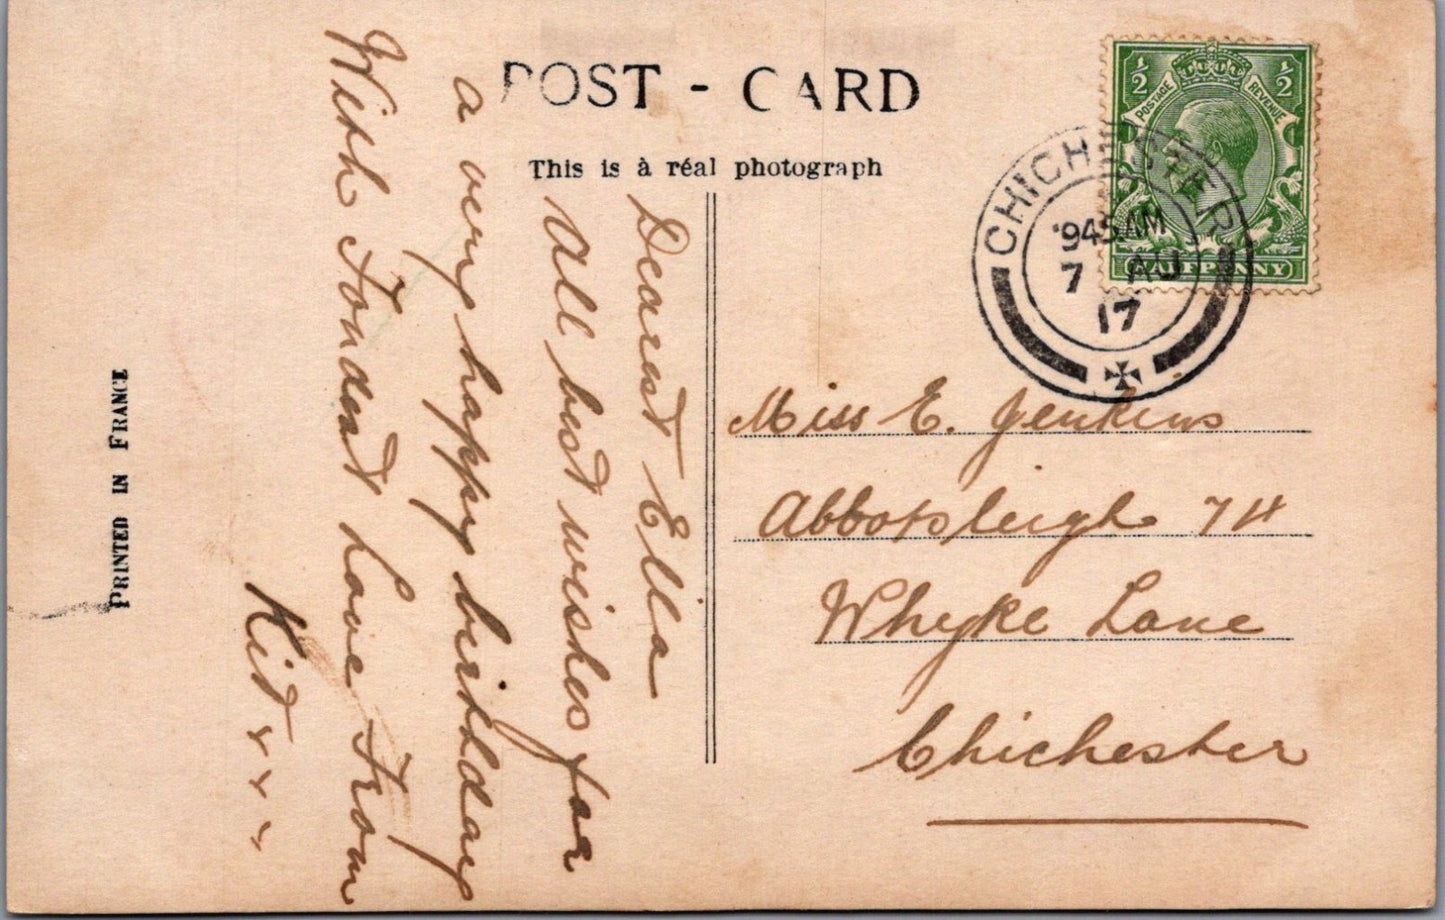 POST - CARD
This is à réal photograph
½ ½
POSTAGE REVENUE
HALFPENNY
CHICHESTER
9 45 AM
7 AU
17
Dearest Ella
All best wishes for
a very happy birthday
With Fondest Love From
Kid x x x
Miss E. Jenkins
Abbotsleigh 74
Whyke Lane
Chichester
PRINTED IN FRANCE